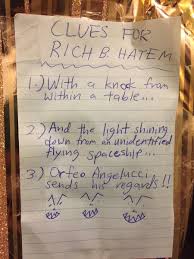 CLUES FOR
RICH B. HATEM
1.) With a knock from
within a table...
2.) And the light shining
down from an unidentified
flying spaceship...
3.) Orfeo Angelucci,
sends his regards!!